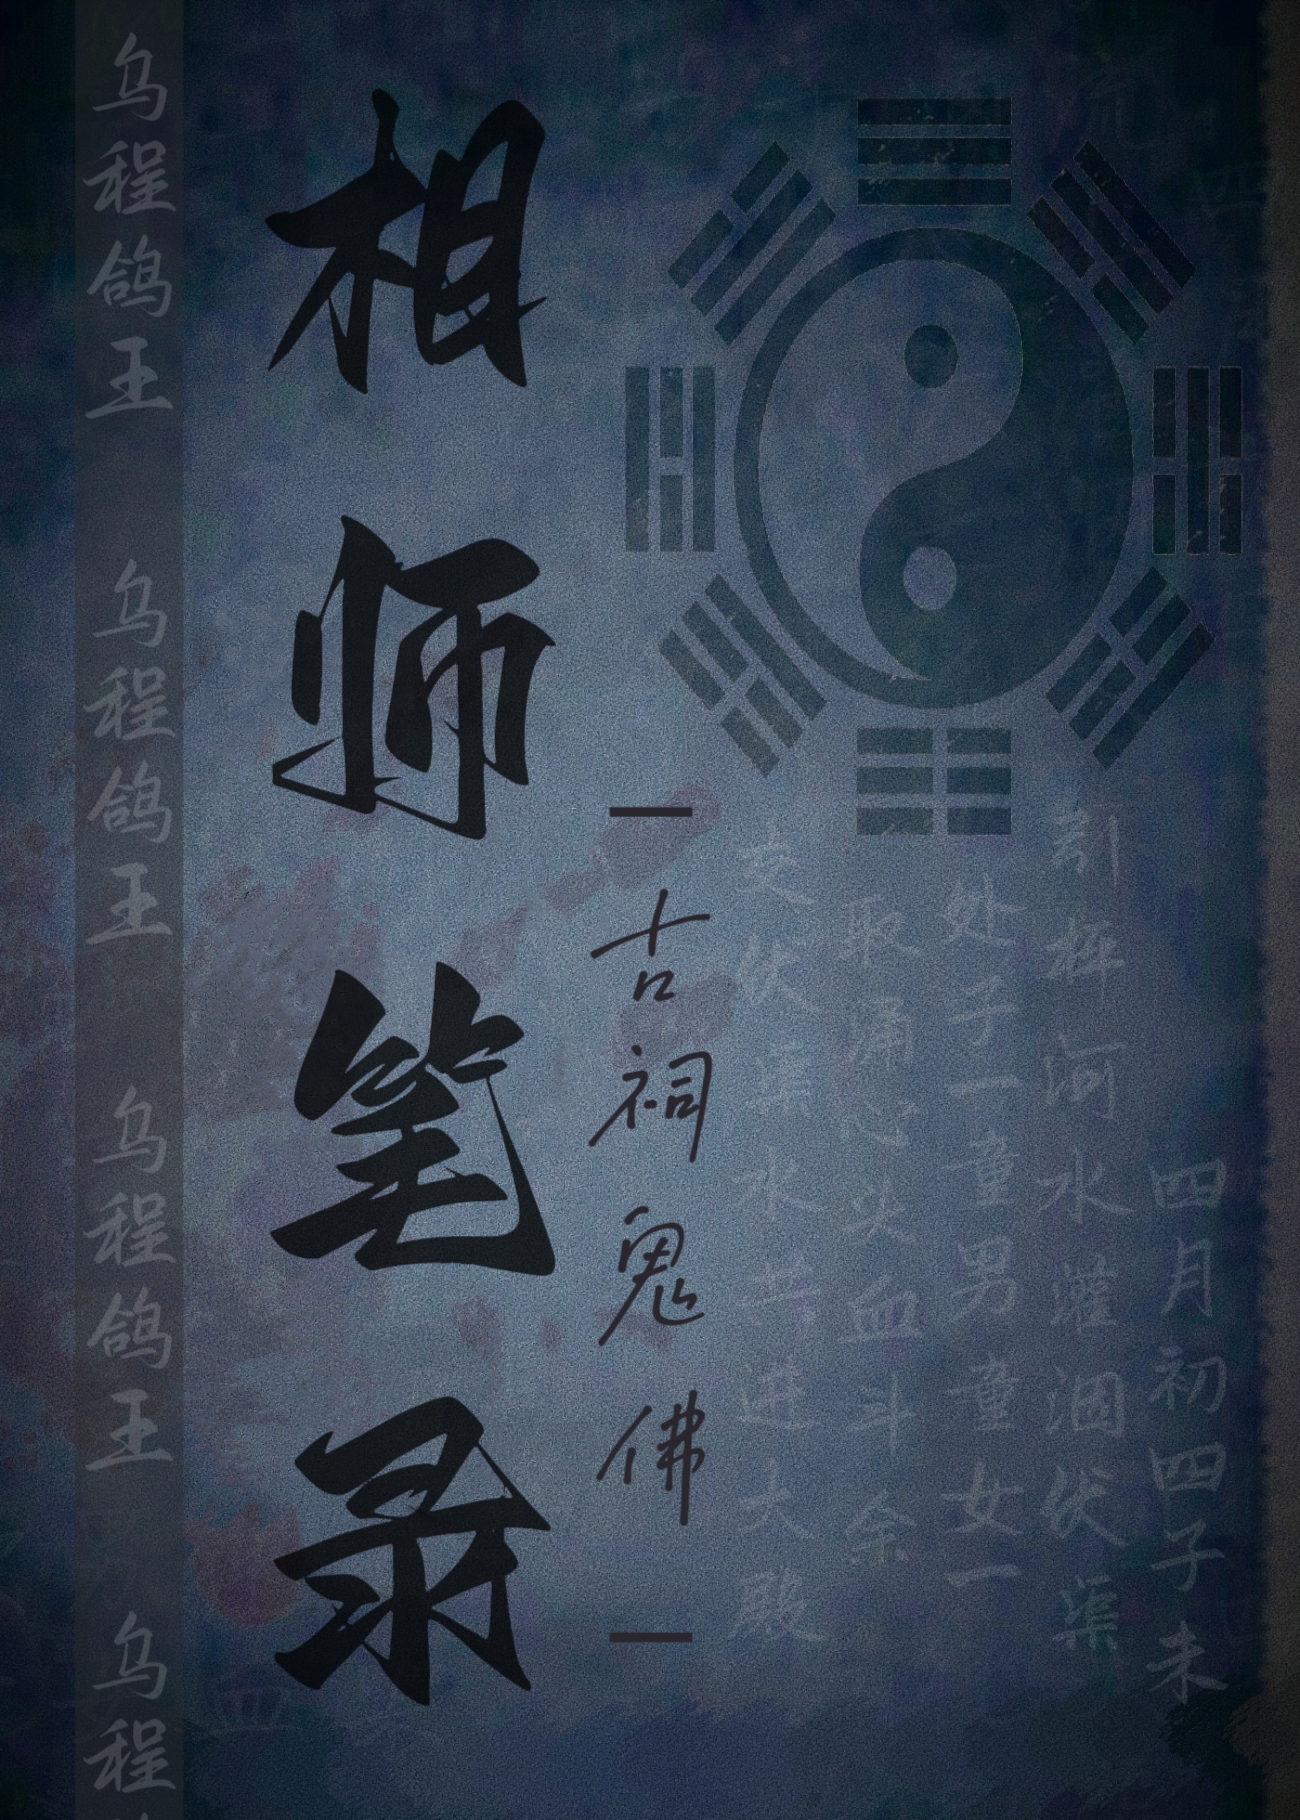 四月初四子未
引 河水灌洄伏渠
处子一童男童女一
取 心头血斗余
伏渠水 进大殿
古祠鬼佛
相师笔录
乌程鸽王
乌程鸽王
乌程鸽王
乌程